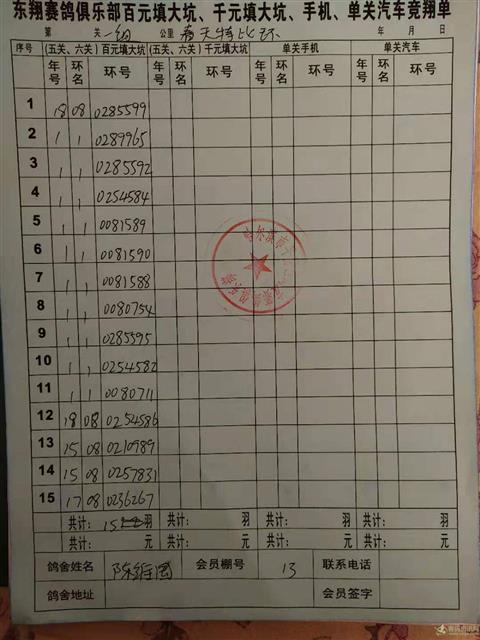 东翔赛鸽俱乐部百元填大坑、千元填大坑、手机、单关汽车竞翔单
第 关 一组 公里 年 月 日
序号 (五关、六关)百元填大坑 (五关、六关)千元填大坑 单关手机 单关汽车
年号 环名 环号 年号 环名 环号 年号 环名 环号 年号 环名 环号
1 18 08 0285599
2 1 1 0289965
3 1 1 0285592
4 1 1 0254584
5 1 1 0081589
6 1 1 0081590
7 1 1 0081588
8 1 1 0080754
9 1 1 0285595
10 1 1 0254582
11 1 1 0080711
12 18 08 0254586
13 15 08 0210989
14 15 08 0257831
15 17 08 0236267
共计: 15 羽 共计: 羽 共计: 羽 共计: 羽
共计: 元 共计: 元 共计: 元 共计: 元
鸽舍姓名 陈 国 会员棚号 13 联系电话
鸽舍地址 会员签字